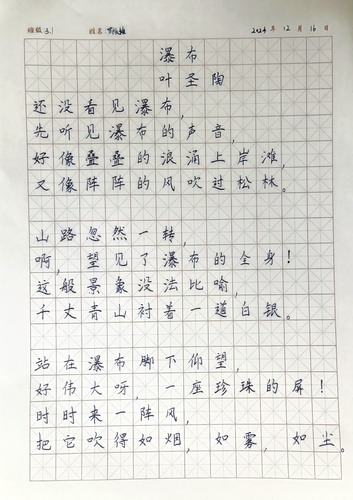 班级 3.1 姓名 2024 年 12 月 16 日
瀑布
叶圣陶
还没看见瀑布,
先听见瀑布的声音,
好像叠叠的浪涌上岸滩,
又像阵阵的风吹过松林。
山路忽然一转,
啊, 望见了瀑布的全身!
这般景象没法比喻,
千丈青山衬着一道白银。
站在瀑布脚下仰望,
好伟大呀, 一座珍珠的屏!
时时来一阵风,
把它吹得如烟, 如雾, 如尘。